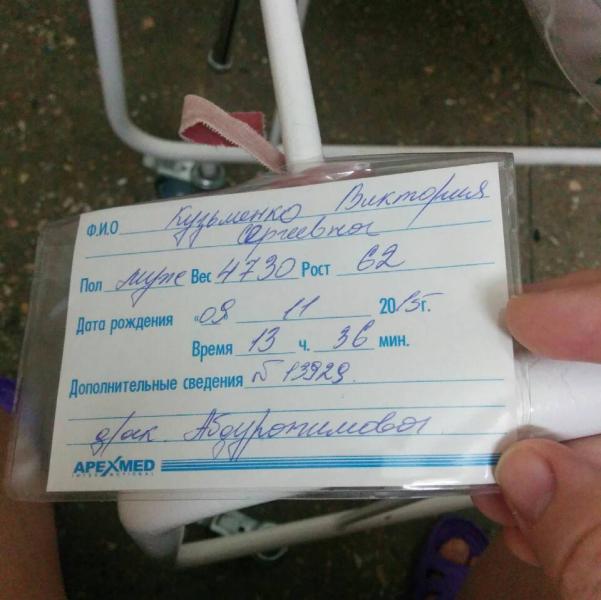 Ф.И.О Кузьменко Виктория
Сергеевна
Пол муж Вес 4730 Рост 62
Дата рождения «09 11 2015г.
Время 13 ч. 36 мин.
Дополнительные сведения №13929.
д/ак. Абдурахимова
APEXMED
INTERNATIONAL